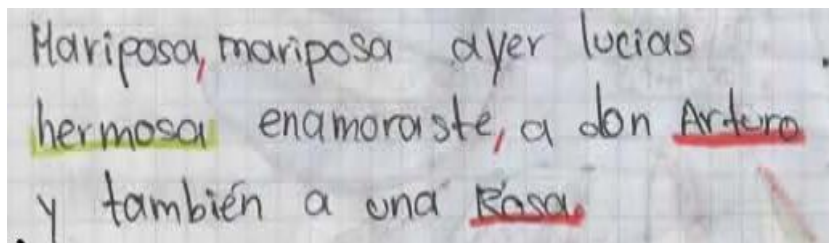 Mariposa, mariposa ayer lucias
hermosa enamoraste, a don Arturo
y también a una Rosa.